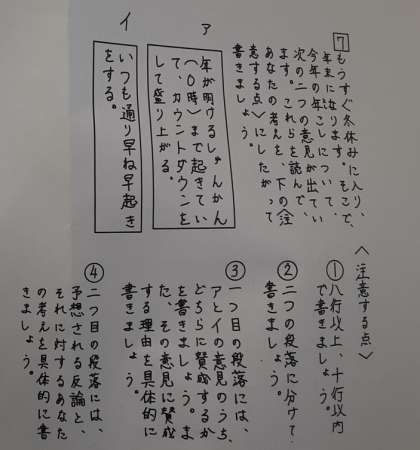 7
もうすぐ冬休みに入り、
年末になります。そこで、
今年の年こしについて、
次の二つの意見が出てい
ます。これらを読んで、
あなたの考えを、下の〈注
意する点〉にしたがって
書きましょう。
ア
年が明けるしゅんかん
(0時)まで起きてい
て、カウントダウンを
して盛り上がる。
イ
いつも通り早ね早起き
をする。
〈注意する点〉
①八行以上、十行以内
で書きましょう。
②二つの段落に分けて
書きましょう。
③一つ目の段落には、
アとイの意見のうち、
どちらに賛成するか
を書きましょう。ま
た、その意見に賛成
する理由を具体的に
書きましょう。
④二つ目の段落には、
予想される反論と、
それに対するあなた
の考えを具体的に書
きましょう。